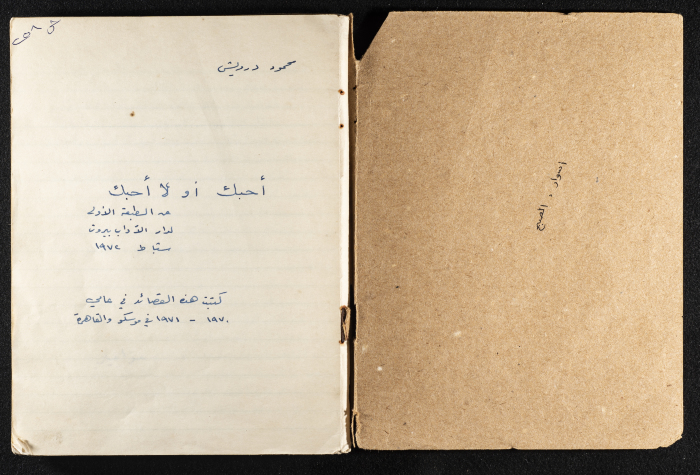 محمود درويش
أحبك أو لا أحبك
عن الطبعة الأولى
لدار الآداب بيروت
سباط ١٩٧٢
كتبت هذه القصائد في عامي
١٩٧٠ - ١٩٧١ في موسكو والقاهرة